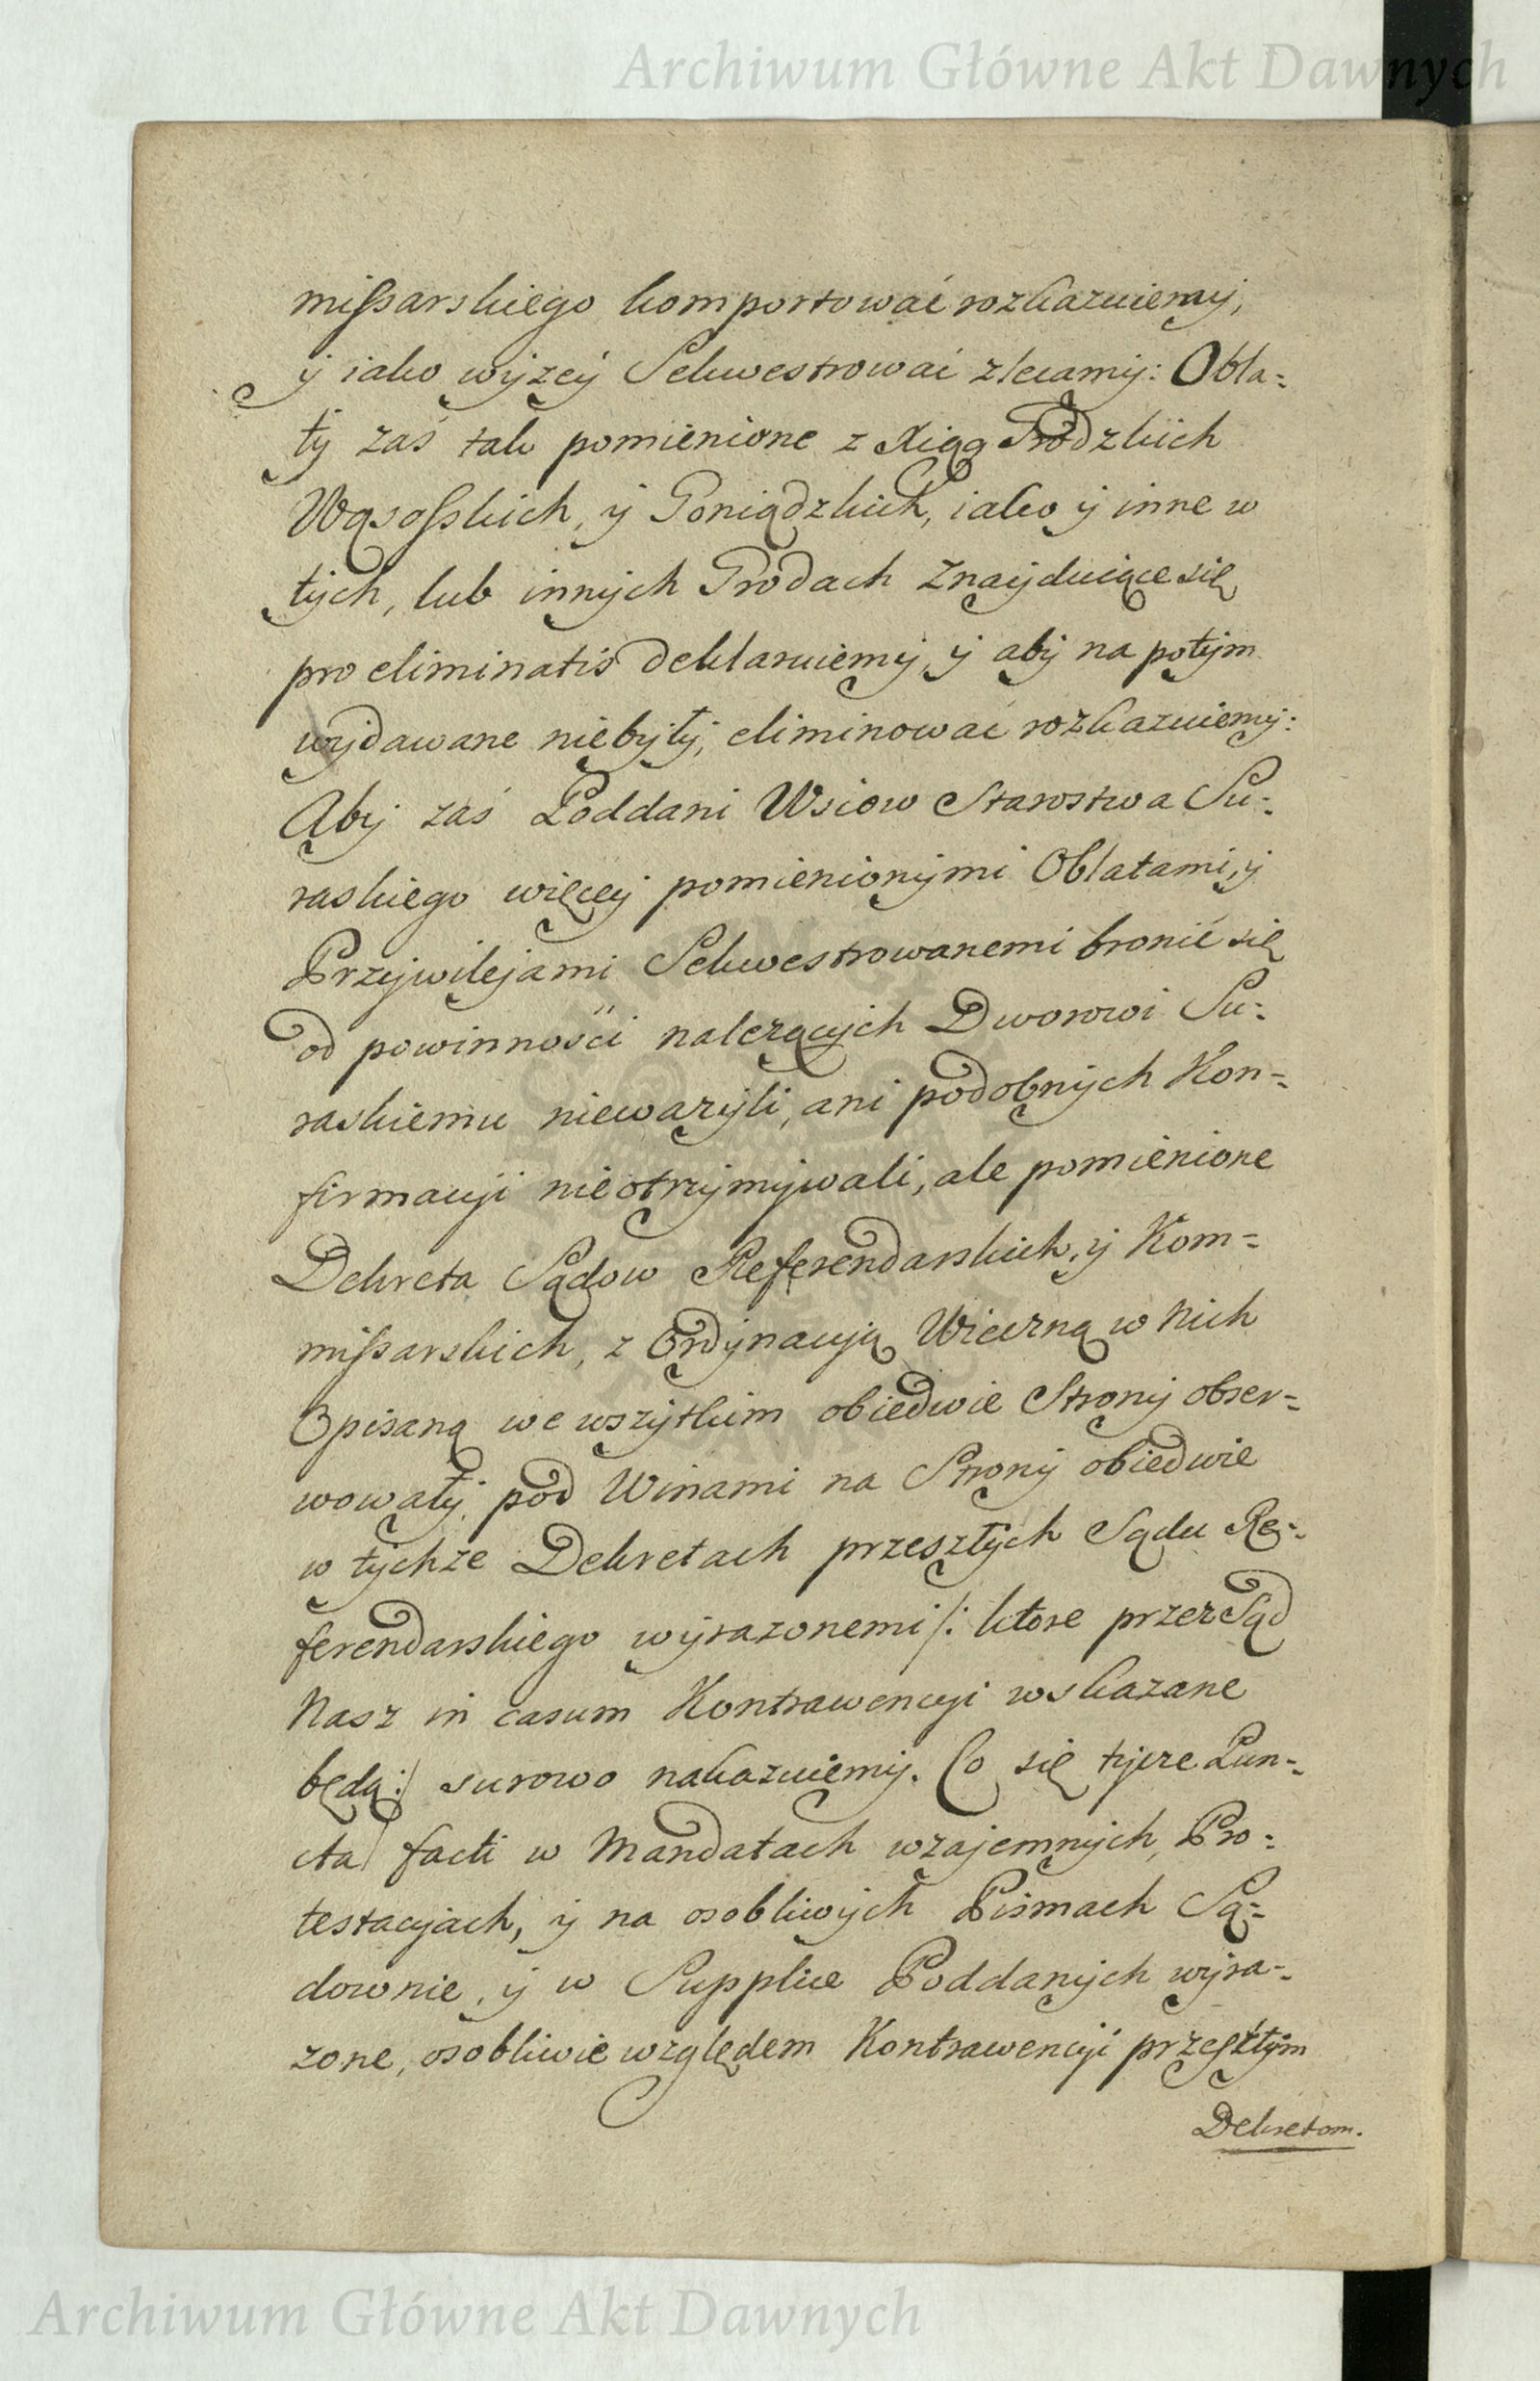 Archiwum Główne Akt Dawnych
mißarskiego komportować rozkazuiemy,
y iako wyzey Sekwestrować zlecamy: Obla-
ty zaś tak pomienione z Xiąg Grodzkich
Wąsoßkich, y Goniądzkich, iako y inne w
tych, lub innych Grodach Znayduiące się
pro eliminatis deklaruiemy, y aby na potym
wydawane niebyły, eliminować rozkazuiemy:
Aby zaś Poddani Wsiow Starostwa Su-
raskiego więcey pomienionymi Oblatami, y
Przywilejami Sekwestrowanemi bronić się
od powinności nalezących Dworowi Su-
raskiemu niewazyli, ani podobnych Kon-
firmacyi nieotrzymywali, ale pomienione
Dekreta Sądow Referendarskich, y Kom-
mißarskich, z Ordynacyią Wieczną w Nich
Opisaną we wszytkim obiedwie Strony obser-
wowały, pod Winami na Strony obiedwie
w tychze Dekretach przeszłych Sądu Re-
ferendarskiego wyrazonemi /: ktore przez Sąd
Nasz in casum Kontrawencyi wskazane
będą :/ surowo nakazuiemy. Co się tycze Pun-
cta facti w Mandatach wzajemnych, Pro-
testacyach, y na osobliwych Pismach Są-
downie, y w Supplice Poddanych wyra-
zone, osobliwie względem Kontrawencyi przeßłym
Dekretom.
Archiwum Główne Akt Dawnych